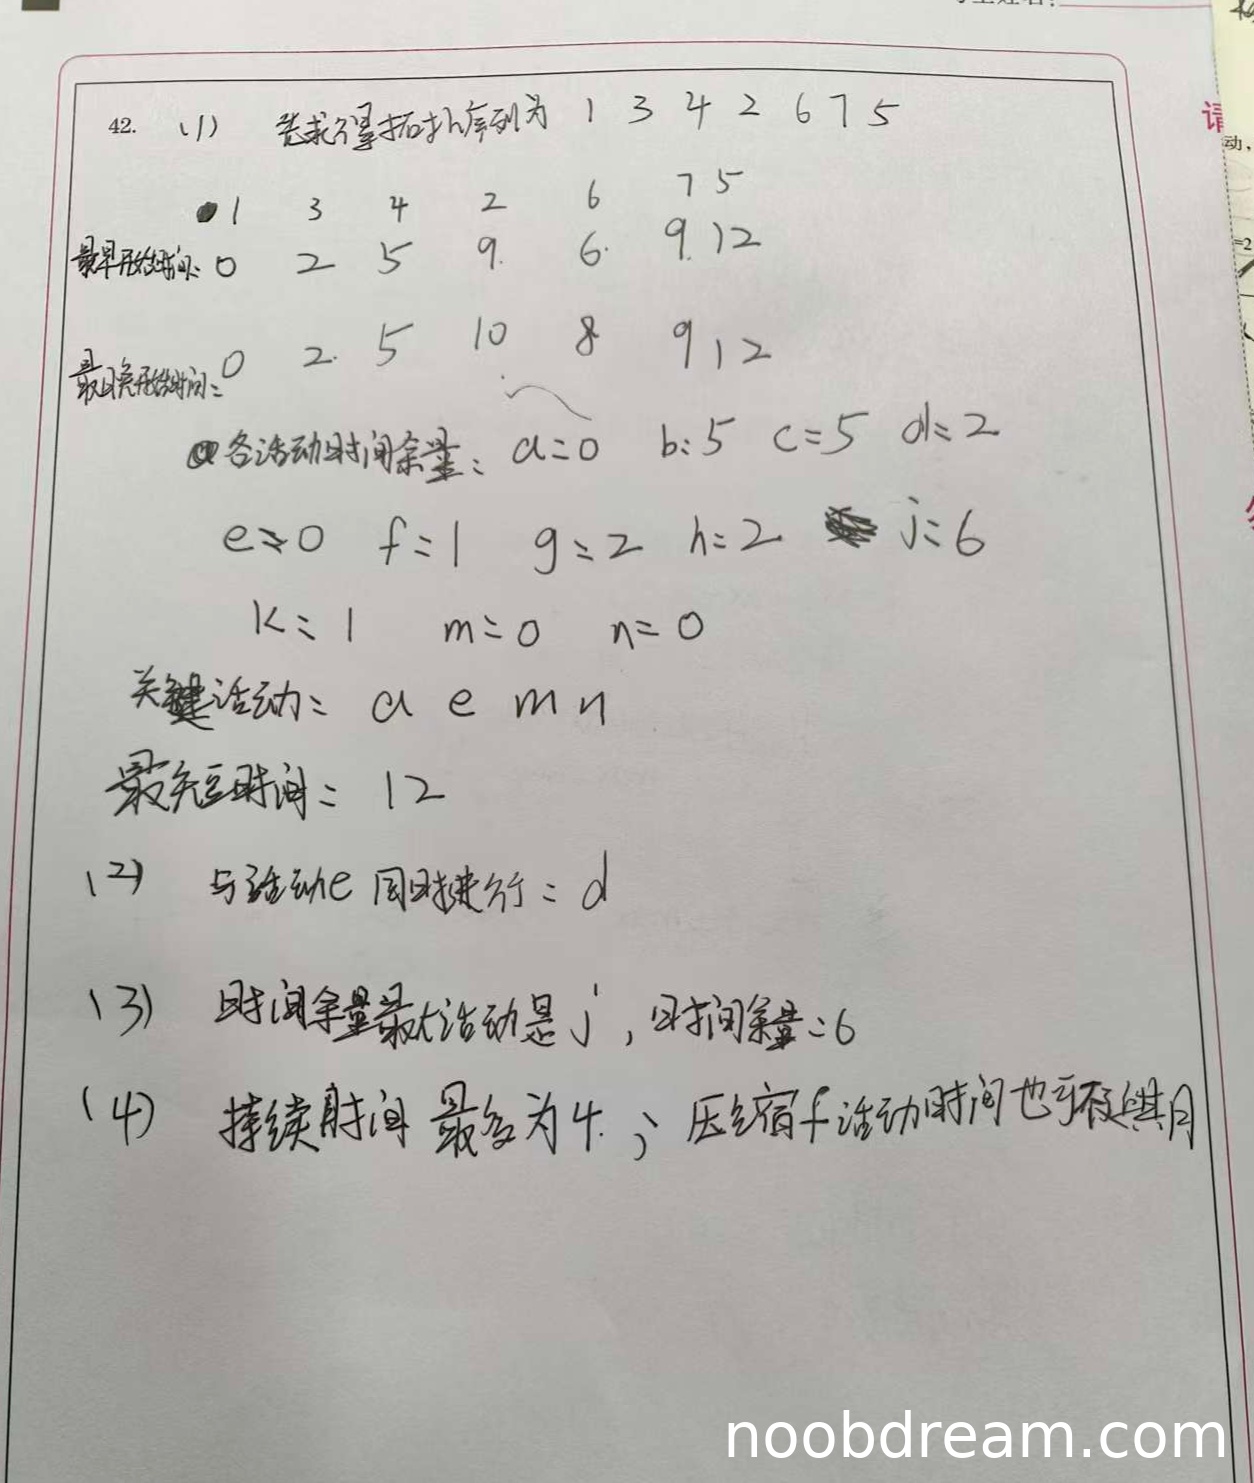 42. (1) 先求得拓扑序列为 1 3 4 2 6 7 5
1 3 4 2 6 7 5
最早开始时间: 0 2 5 9 6 9 12
最晚开始时间: 0 2 5 10 8 9 12
各活动时间余量: a=0 b=5 c=5 d=2
e=0 f=1 g=2 h=2 j=6
k=1 m=0 n=0
关键活动: a e m n
最短时间: 12
(2) 与活动e同时进行: d
(3) 时间余量最大活动是j, 时间余量=6
(4) 持续时间最多为4; 压缩f活动时间也
请
动,
=2
noobdream.com